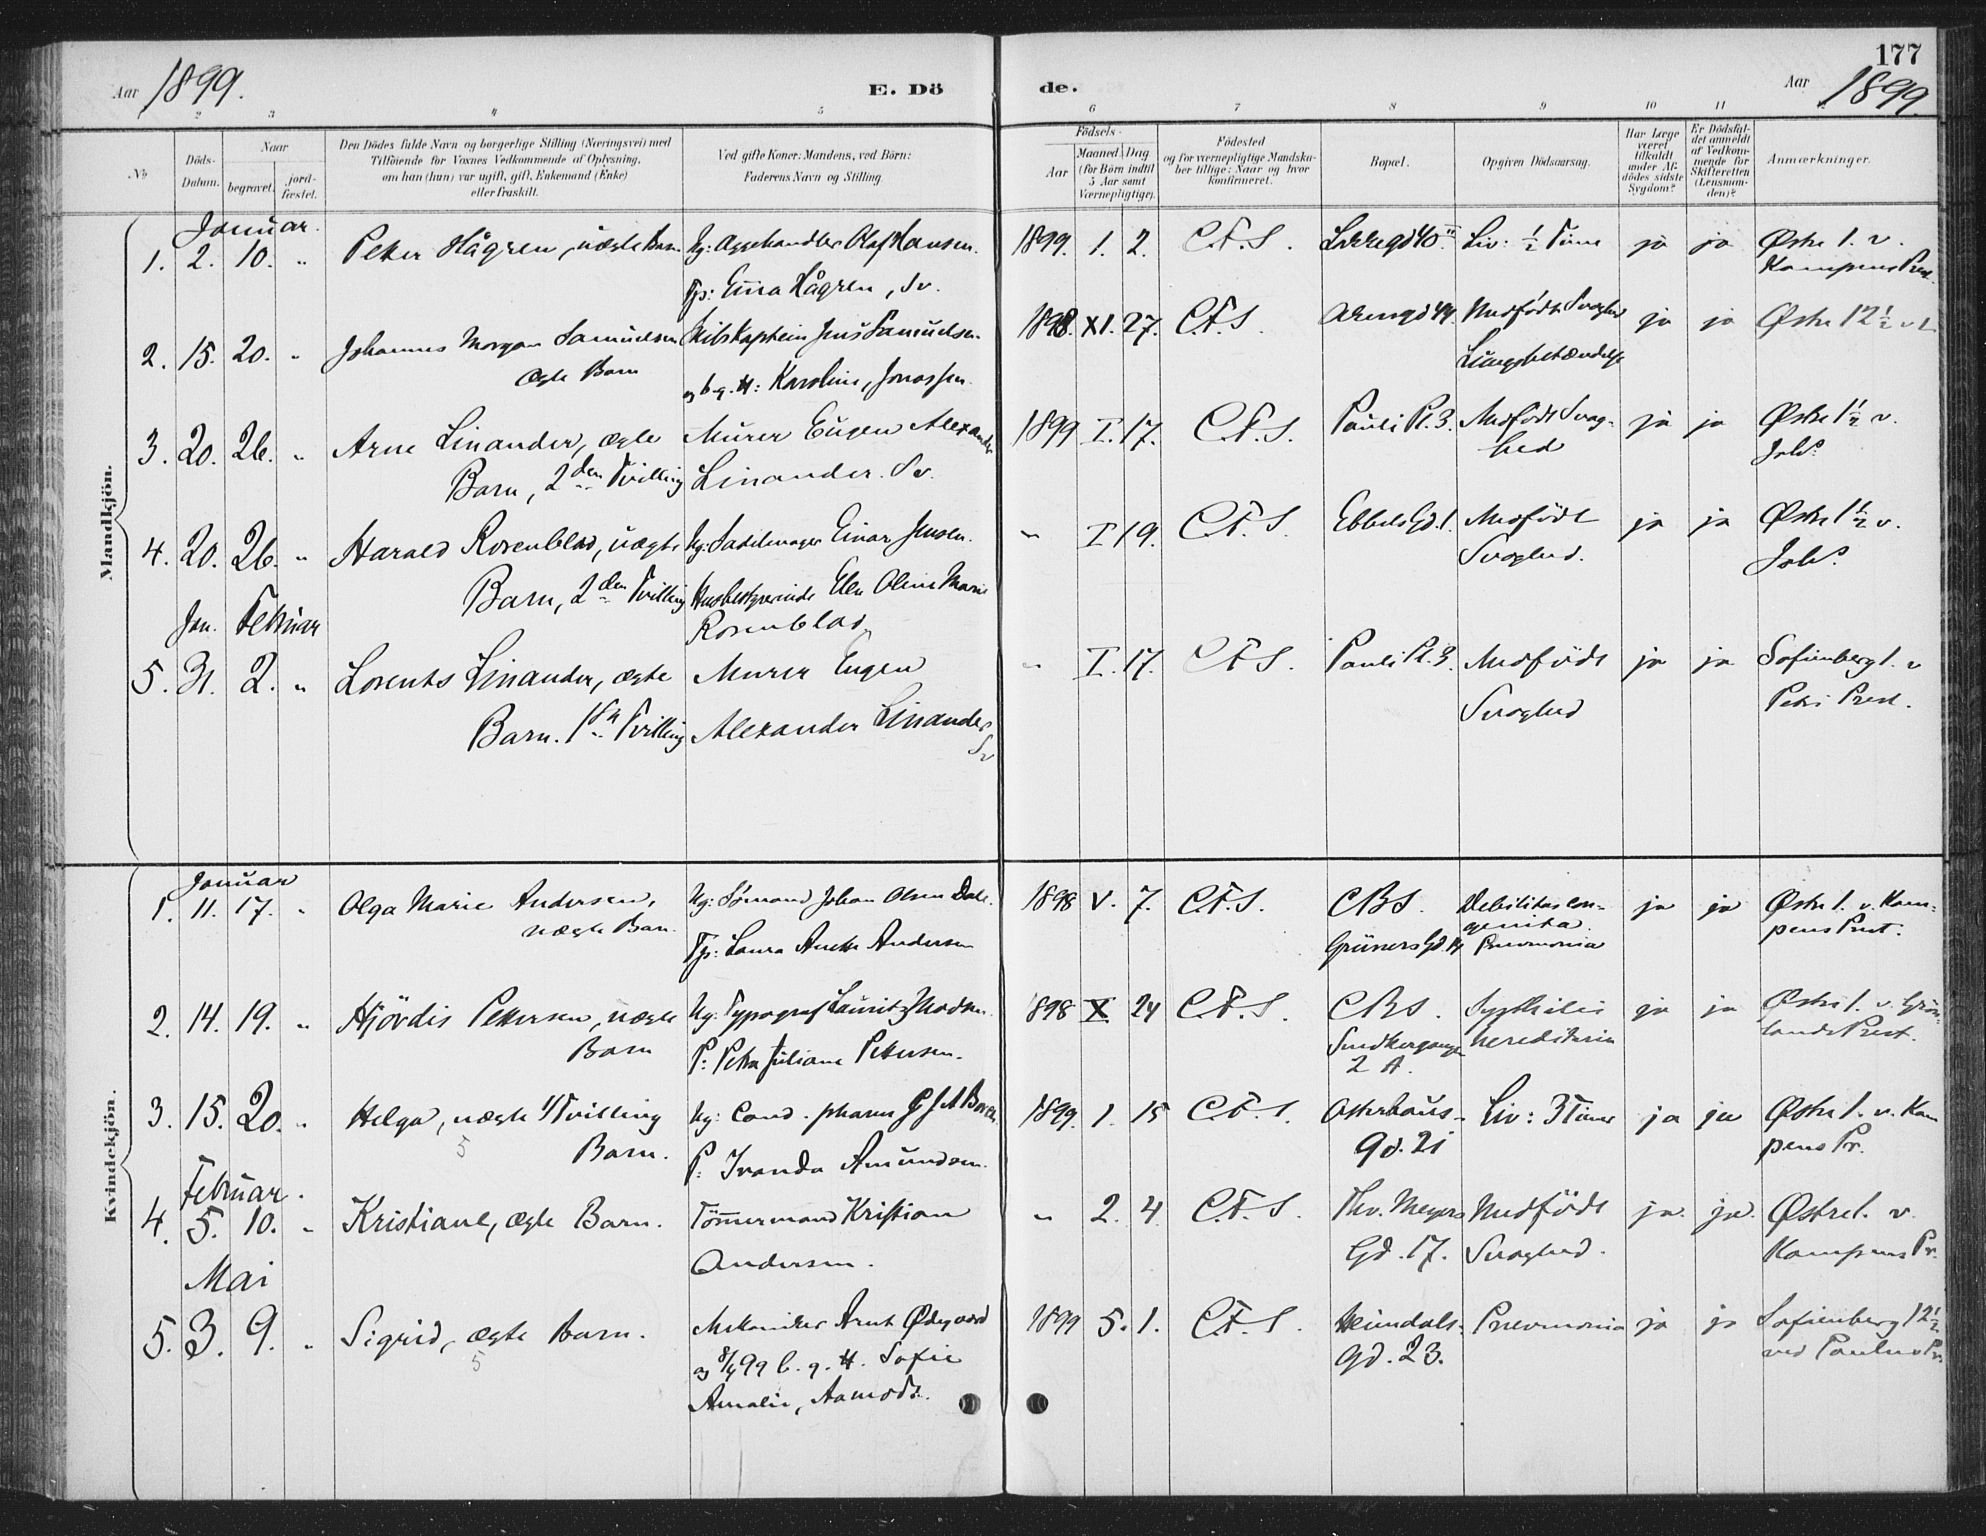 177
Aar 1899.
E. Dö
de.
Aar 1899.
2 3 4 5 6 7 8 9 10 11
No
Döds-Datum.
Naar
begravet.
jord-fæstet.
Den Dödes fulde Navn og borgerlige Stilling (Næringsvei) med
Tilföiende for Voxnes Vedkommende af Oplysning,
om han (hun) var ugift, gift, Enkemand (Enke)
eller fraskilt.
Ved gifte Koner: Mandens, ved Börn:
Faderens Navn og Stilling
Födsels-
Aar
Maaned
Dag
(for Börn indtil
5 Aar samt
Værnepligtige).
Födested
og for værnepligtige Mandska-
ber tillige: Naar og hvor
konfirmeret.
Bopæl.
Opgiven Dödsaarsag.
Har Læge
været
tilkaldt
under Af-
dödes sidste
Sygdom?
Er Dödsfal-
det anmeldt
af Vedkom-
mende for
Skifteretten
(Lensman-
den)?
Anmærkninger.
Mandkjön.
Januar.
1. 2. 10. " Peter Hågren, uægte Barn. Ug: Olaf Hansen. 1899. 1. 2. C.F.S. Liv: 1/2 Time ja ja Østre 1. v.
Fp: Emma Hågren, Sv. Kampens Prest.
2. 15. 20. " Johannes Morgan Samuelsen Skibskaptein Jens Samuelsen 1898. XI. 27. C.F.S. Medfödt Svaghed ja ja Østre 12 1/2
ægte Barn og b. g. H: Karoline, Jonassen. Lungebetændelse
3. 20. 26. " Arne Linander, ægte Murer Eugen Alexander 1899 I. 17. C.F.S. Pauli Pl. 3. Medfödt Svag- ja ja Østre 1 1/2 v.
Barn, 2den Tvilling Linander. Sv. hed Johs.
4. 20. 26. " Harald Rosenblad, uægte Ug: Sadelmager Einar Jensen. " I 19. C.F.S. Ebbels Gd. 1 Medfödt ja ja Østre 1 1/2 v.
Barn, 2den Tvilling Husbestyrerinde Elen Oline Marie Svaghed. Johs.
Jan. Februar Rosenblad
5. 31. 2. " Lorents Linander, ægte Murer Eugen " I. 17. C.F.S. Pauli Pl. 3. Medfödt ja ja Sofienberg 1. v
Barn. 1ste Tvilling Alexander Linander Svaghed Petri Prest.
Sv
Kvindekjön.
Januar
1. 11. 17. " Olga Marie Andersen, Ug: Sömand Johan Olsen Dahl. 1898 V. 7. C.F.S. CBS. Debilitas con- ja ja Østre 1. v. Kam-
uægte Barn. Fp: Laura Andersen Grüners Gd. genita. Pneumonia pens Prest.
2. 14. 19. " Hjördis Petersen, uægte Ug: Typograf Lauritz Madsen. 1898 X 24 C.F.S. CBS. Syphilis ja ja Østre 1. v. Grön-
Barn P: Petra Juliane Petersen. 2 A. hereditaria lands Prest.
3. 15. 20. " Helga, uægte 1/Tvilling Ug: Cand. pharm 1899. 1. 15 C.F.S. Osterhaus- Liv: 3 Timer ja ja Østre 1. v. Kam
5 Barn. P: Amundsen. Gd. 21 pens Pr.
Februar.
4. 5. 10. " Kristiane, ægte Barn. Tömmermand Kristian " 2. 4 C.F.S. Thv. Meyers Medfödt ja. ja. Østre 1. v.
Andersen. Gd. 17. Svaghed. Kampens Pr.
Mai
5. 3. 9. " Sigrid, ægte Barn. Mekaniker Arnt Ødegaard 1899 5. 1. C.F.S. Heimdals- Pnevmonia ja ja Sofienberg 12 1/2
5 og 99 b. g. H. Sofie Gd. 23. ved Paulus Pr.
Amalie, Aamodt.